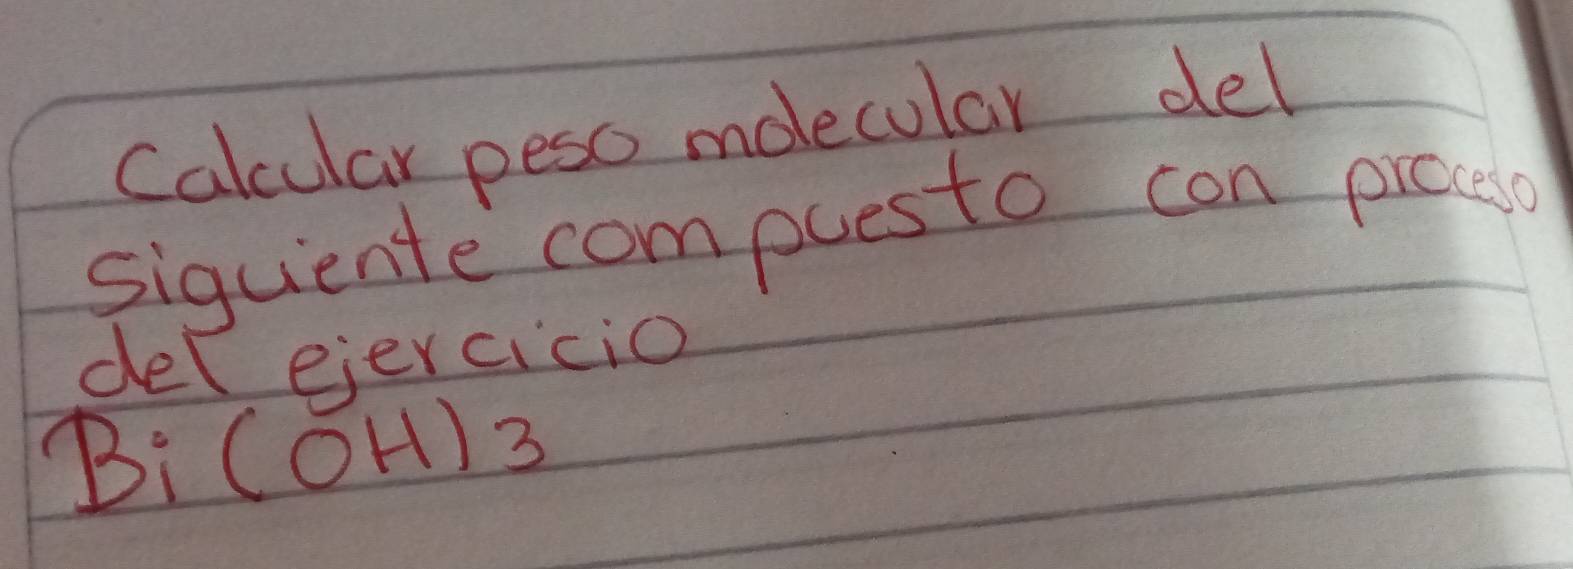 Calcular peso molecular del
siguiente compuesto con proceso
del ejercicio
Bi(OH)3